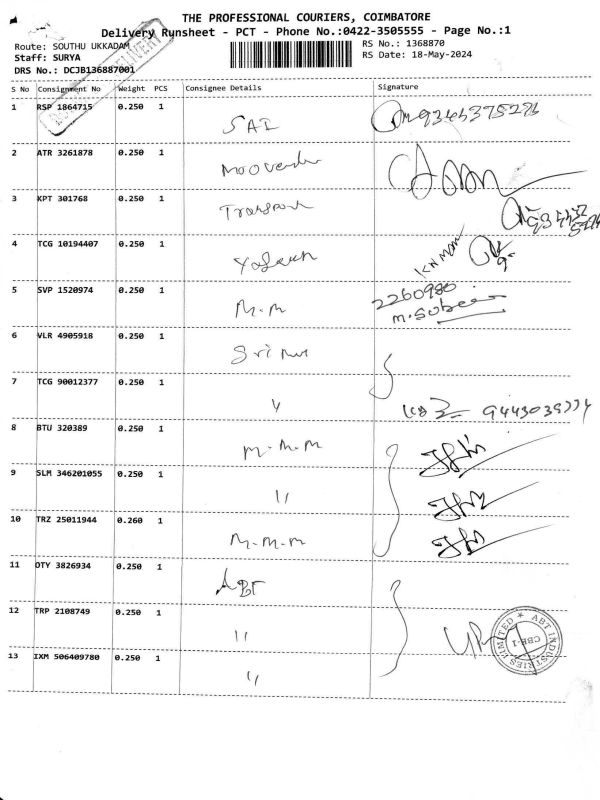 THE PROFESSIONAL COURIERS, COIMBATORE
Delivery Runsheet - PCT - Phone No.:0422-3505555 - Page No.:1
Route: SOUTHU UKKADAM
RS No.: 1368870
Staff: SURYA
RS Date: 18-May-2024
DRS No.: DCJB136887001
DELIVERY
S No Consignment No Weight PCS Consignee Details Signature
1 RSP 1864715 0.250 1 SAI
2 ATR 3261878 0.250 1
3 KPT 301768 0.250 1 Transport
4 TCG 10194407 0.250 1
5 SVP 1520974 0.250 1 M.M 2260980
6 VLR 4905918 0.250 1 Sri
7 TCG 90012377 0.250 1 "
8 BTU 320389 0.250 1 M.M.M
9 SLM 346201055 0.250 1 "
10 TRZ 25011944 0.260 1 M.M.M
11 OTY 3826934 0.250 1 ABT
12 TRP 2108749 0.250 1 "
13 IXM 506409780 0.250 1 "
ABT INDUSTRIES LIMITED
CBE-1